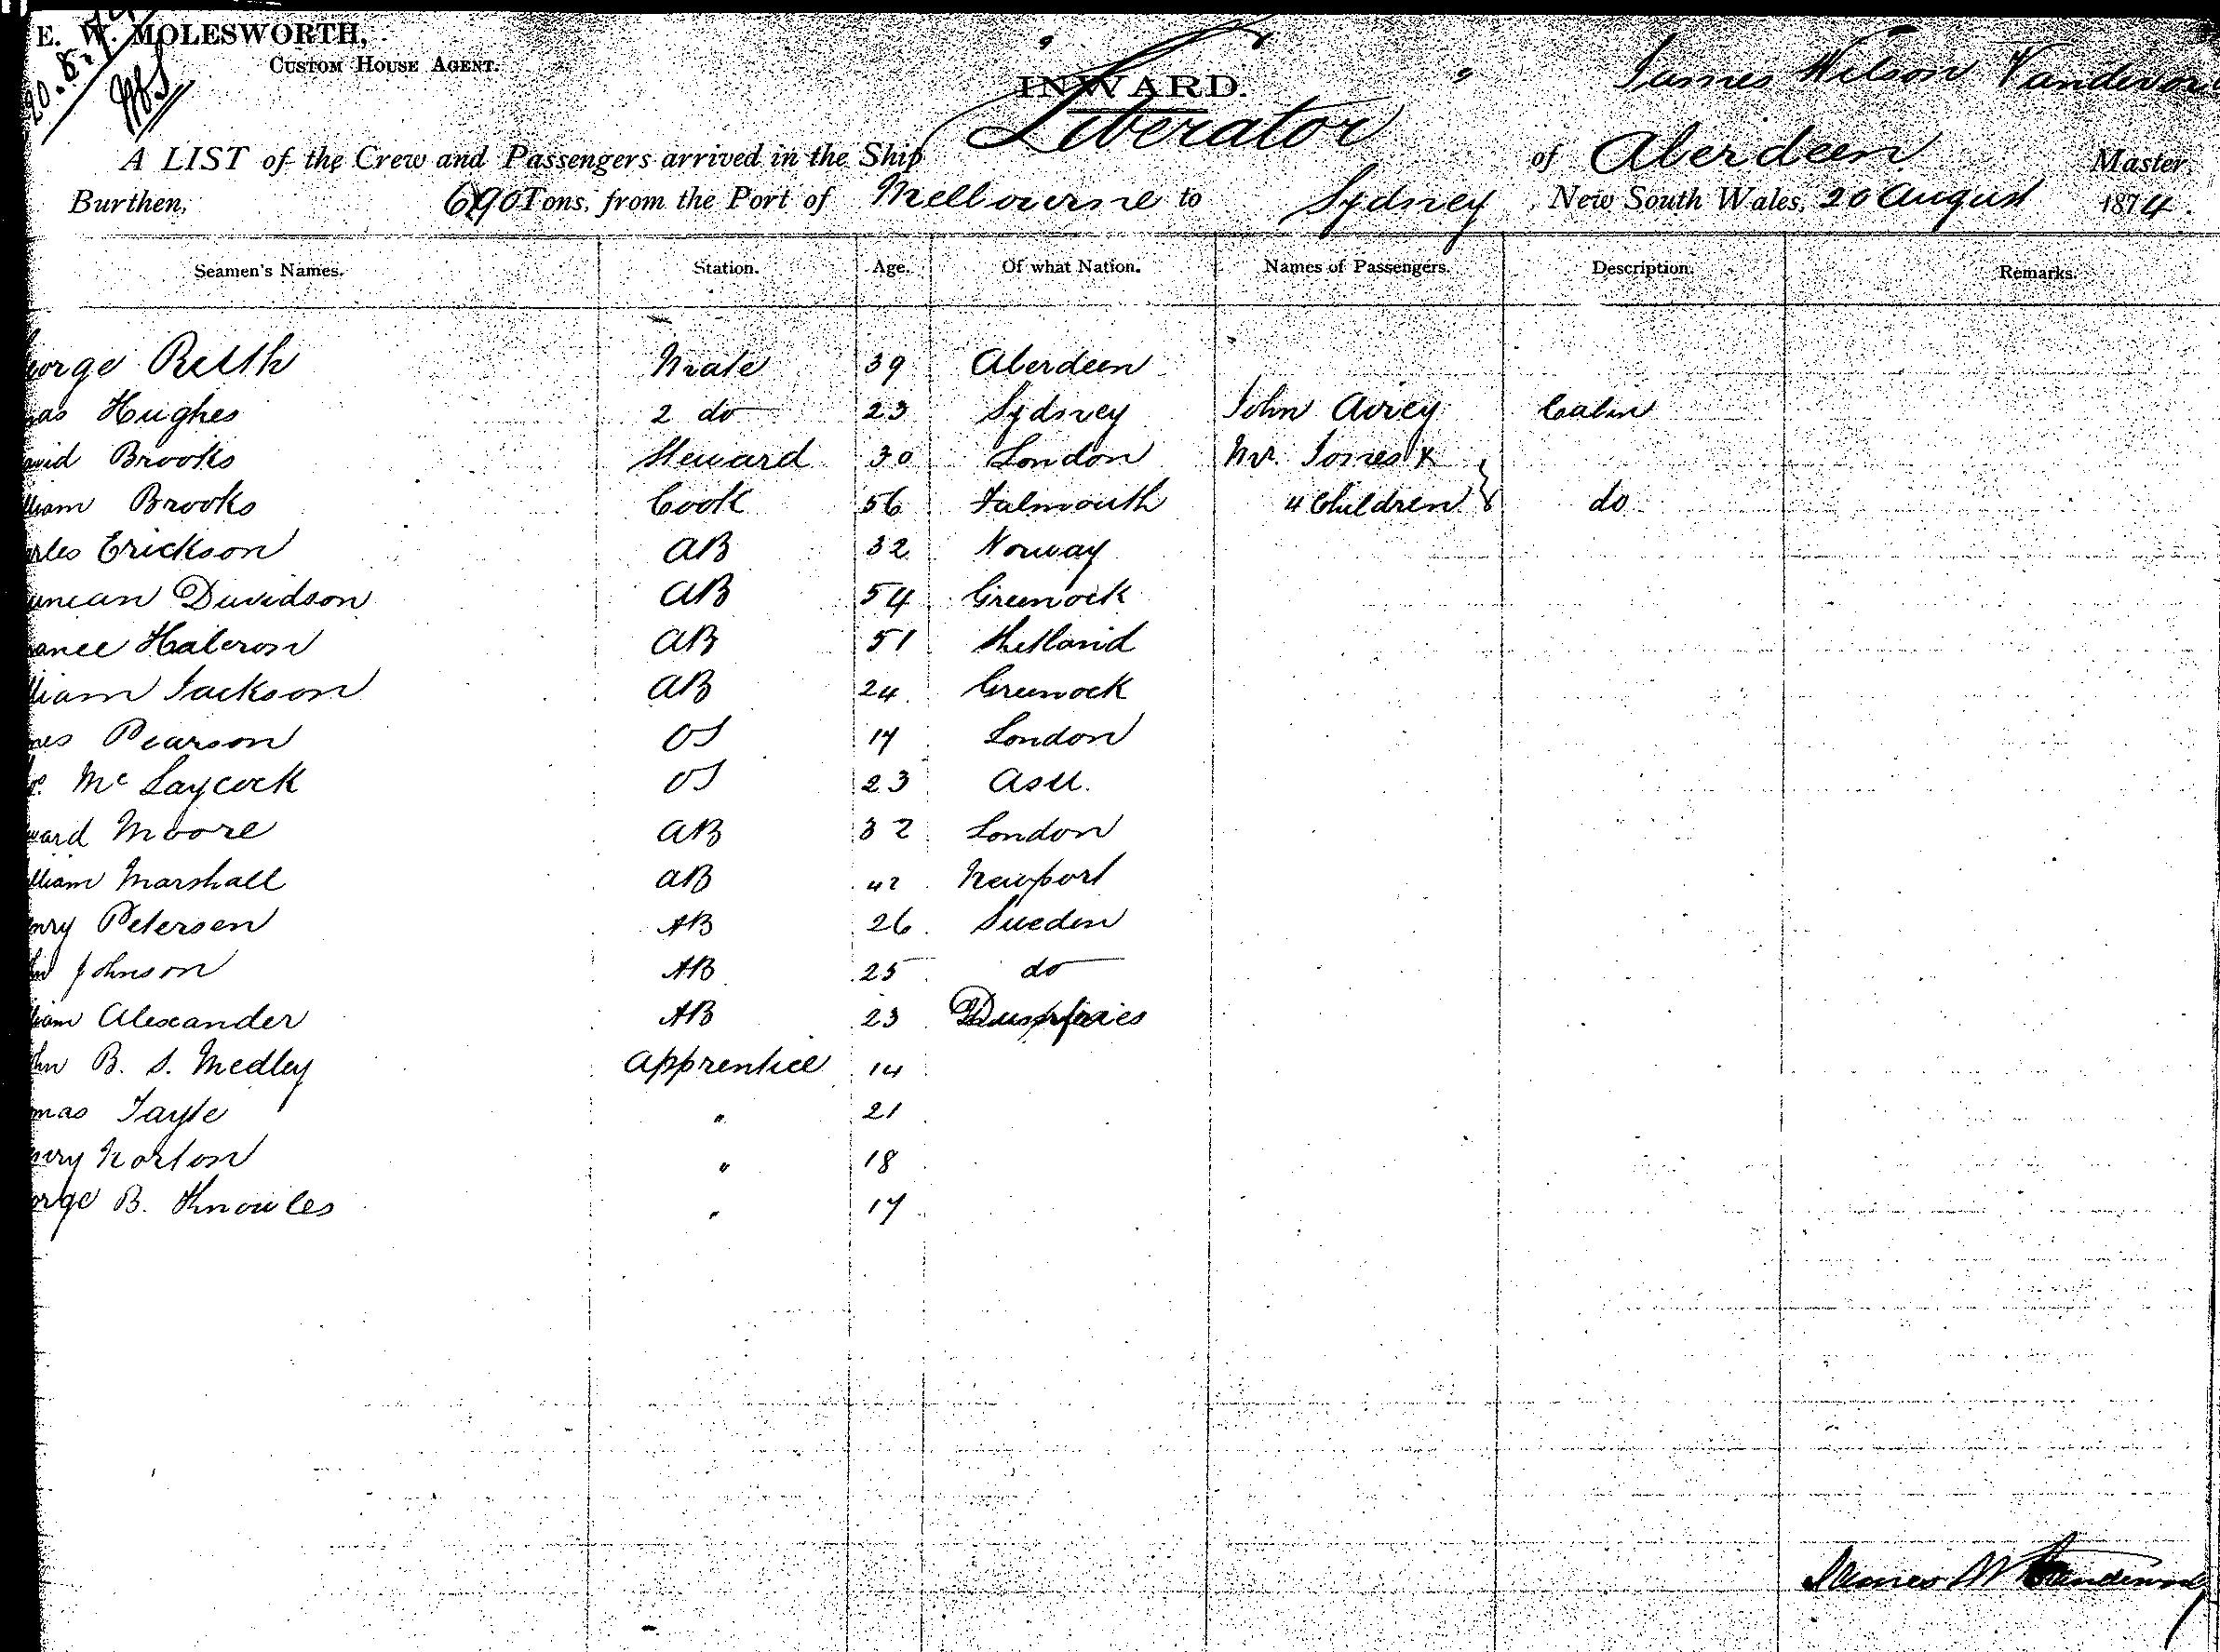 E. W. MOLESWORTH,
CUSTOM HOUSE AGENT.
INWARD.
A LIST of the Crew and Passengers arrived in the Ship "Liberator" of Aberdeen James Wilson Master,
Burthen, 690 Tons, from the Port of Melbourne to Sydney, New South Wales, 20 August 1874.
Seamen's Names. Station. Age. Of what Nation. Names of Passengers. Description. Remarks.
orge Mate 39 Aberdeen
as Hughes 2 do 23 Sydney John Airey Cabin
avid Brooks Steward 30 London
lliam Brooks Cook 56 Falmouth 4 Children } do
arles Erickson AB 32 Norway
uncan Davidson AB 54 Greenock
Halcrow AB 51 Shetland
lliam Jackson AB 24 Greenock
mes Pearson OS 17 London
Mc Laycock OS 23
ward Moore AB 32 London
illiam Marshall AB 42 Newport
enry Petersen AB 26 Sweden
Johnson AB 25 do
liam Alexander AB 23 Dumfries
ohn B. S. Medley Apprentice 14
mas " 21
enry Norton " 18
orge B. Knowles " 17
James W